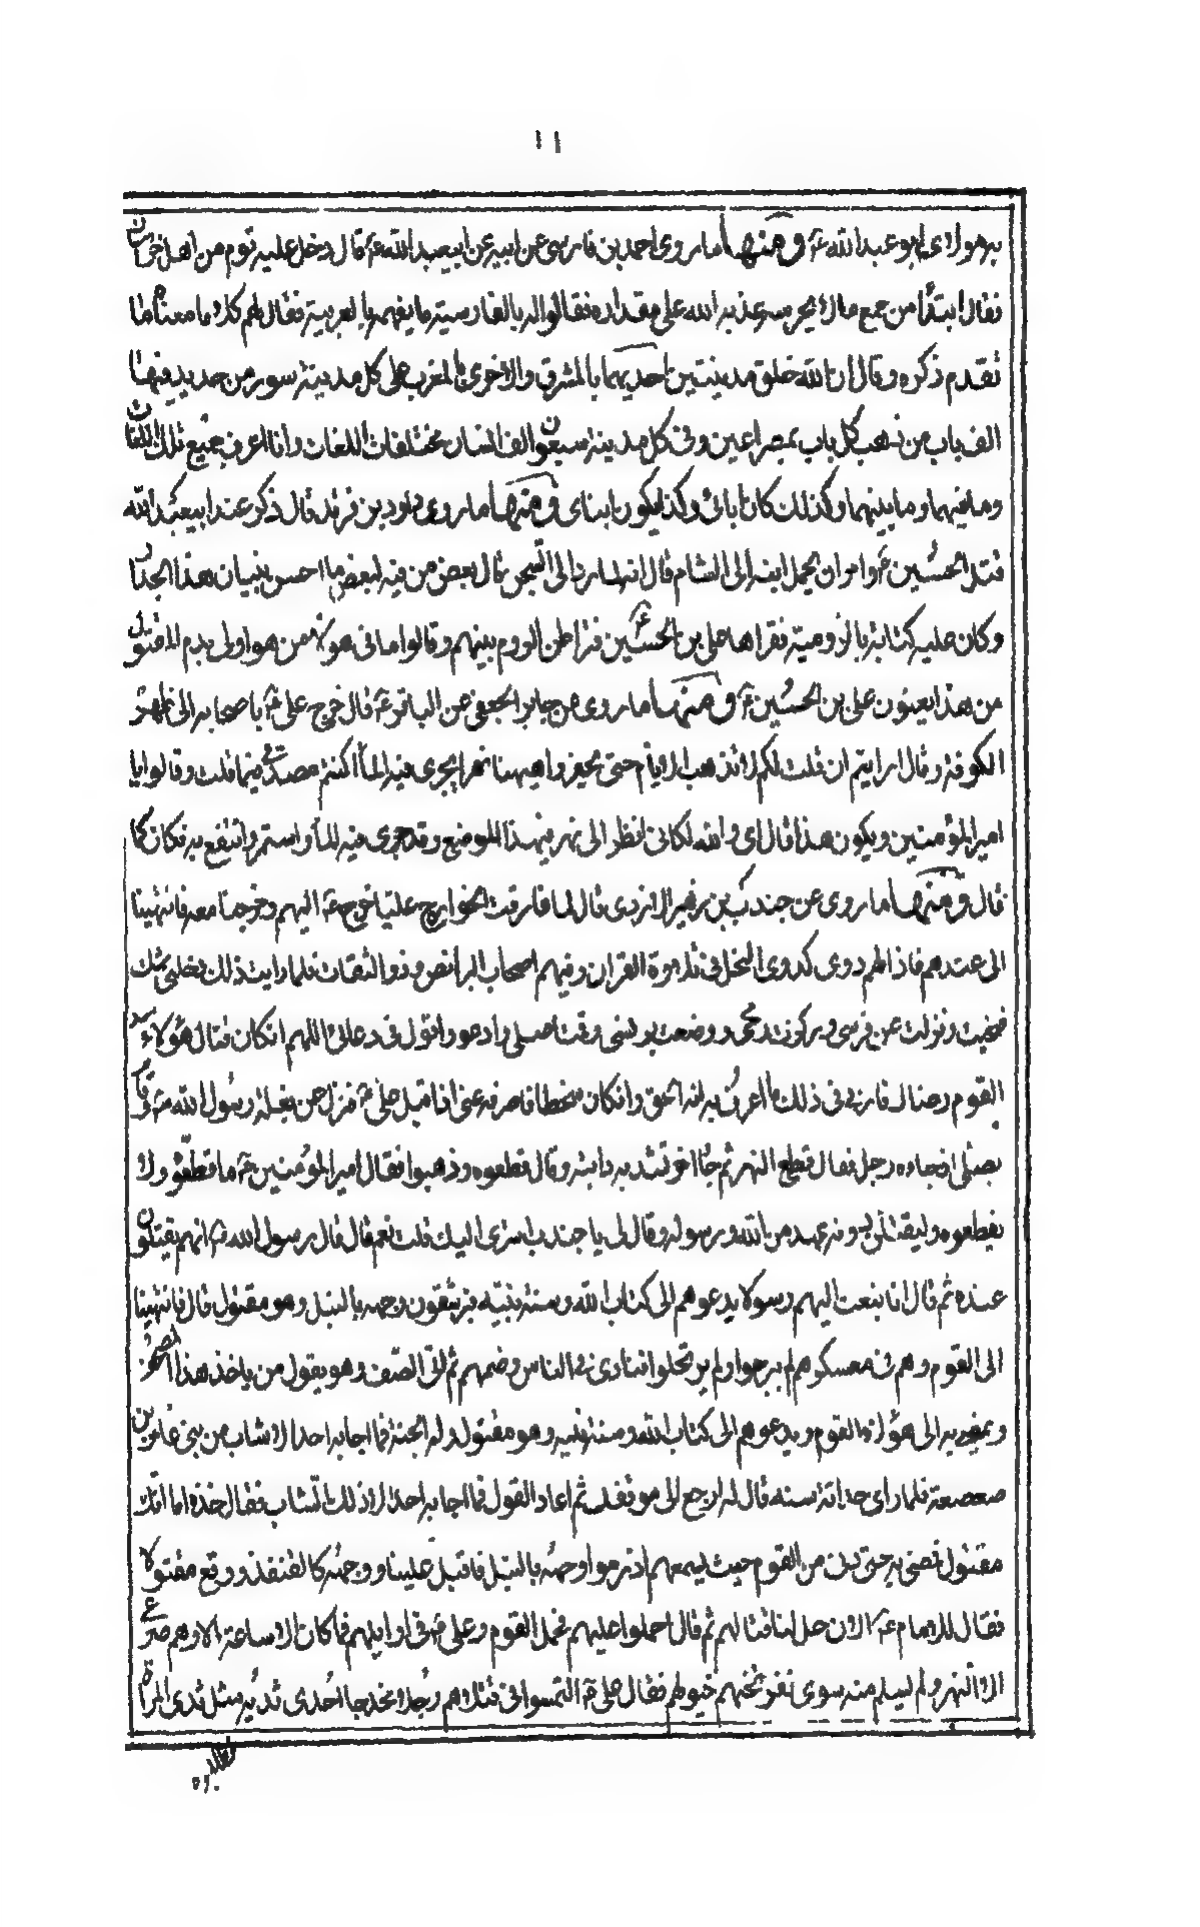 ١١
بن هولاى ابو عبد الله ع و منها ما روى احمد بن فارس عن ابيه عن ابيعبد الله ع قال دخل عليه قوم من اهل خراسان
فقال ابتداء من جمع مالا يحرسه عذبه الله على مقداره فقالوا له بالفارسية ما يفهم بالعربية فقال لهم كلاما معناه ما
تقدم ذكره وقال ان الله خلق مدينتين احديهما بالمشرق والاخرى بالمغرب على كل مدينة سور من حديد فيها
الف باب من ذهب كل باب بمصراعين وفى كل مدينة سبعون الف لسان مختلفات اللغات وانا اعرف جميع تلك اللغات
وما فيهما وما بينهما وكذلك كان ابائى وكذا يكون ابناى و منها ما روى داود بن فرقد قال ذكر عند ابيعبد الله
قتل الحسين ع وامر ان يحمل ابنه الى الشام قال انه لما ورد الى السجن قال بعض من فيه لبعض ما احسن بنيان هذا الجدار
وكان عليه كتابة بالرومية فقراها على بن الحسين ع فتراطن الروم بينهم وقالوا ما فى هولاء من هو اولى بدم المقتول
من هذا يعنون على بن الحسين ع و منها ما روى عن جابر الجعفى عن الباقر ع قال خرج على ع باصحابه الى ظهر
الكوفة وقال ارايتم ان قلت لكم لا تذهب الايام حتى يحفر واهيهنا نهر ايجرى فيه الماء اكنتم مصدقى فيما قلت وقالوا يا
امير المؤمنين ويكون هذا قال اى والله لكانى انظر الى نهر فى هذا الموضع وقد جرى فيه الماء واستمر وانتفع به فكان كما
قال و منها ما روى عن جندب بن زهير الازدى قال لما فارقت الخوارج عليا خرج ع اليهم وخرجنا معه فانتهينا
الى عسكرهم فاذا لهم دوى كدوى النحل فى تلاوة القران وفيهم اصحاب البرانس وذو الثفنات فلما رايت ذلك دخلنى شك
فتنحيت ونزلت عن فرسى وركزت رمحى ووضعت ترسى وقمت اصلى وادعو واقول فى دعائى اللهم ان كان قتال هؤلاء
القوم رضا لك فارنى فى ذلك ما اعرف به انه الحق وان كان سخطا فاصرف عنى اذ اقبل على ع فنزل عن بغلة رسول الله ص وقام
يصلى اذ جاءه رجل فقال قطع النهر ثم جاء اخر تشتد به دابته وقال قطعوه وذهبوا فقال امير المؤمنين ع ما قطعوه ولا
يقطعوه وليقتلن دونه عهد من الله ورسوله وقال لى يا جندب اترى التل قلت نعم قال قال رسول الله ص انهم يقتلون
عنده ثم قال انا نبعث اليهم رسولا يدعوهم الى كتاب الله وسنة نبيه فيرشقون وجهه بالنبل وهو مقتول قال فانتهينا
الى القوم وهم فى معسكرهم لم يبرحوا ولم يرتحلوا فنادى فى الناس وضمهم ثم اتى الصف وهو يقول من ياخذ هذا المصحف
ويمضى به الى هؤلاء القوم ويدعوهم الى كتاب الله وسنة نبيه وهو مقتول وله الجنة فما اجابه احد الا شاب من بنى عامر بن
صعصعة فلما راى حداثة سنه قال له ارجع الى موقفك ثم اعاد القول فما اجابه احد الا ذلك الشاب فقال خذه اما انك
مقتول فمضى به حتى دنى من القوم حيث يسمعهم اذ رموا وجهه بالنبل فاقبل علينا ووجهه كالقنفذ ووقع مقتولا
فقال الامام ع الان حل لنا قتالهم ثم قال احملوا عليهم فحمل القوم وعلى ع فى اوايلهم فما كان الا ساعة الا وهم صرعى
الا النهر ولم يسلم منه سوى نفر خيولهم فقال على ع التمسوا فى قتلاهم رجلا مخدجا احدى ثدييه مثل ثدى المراة